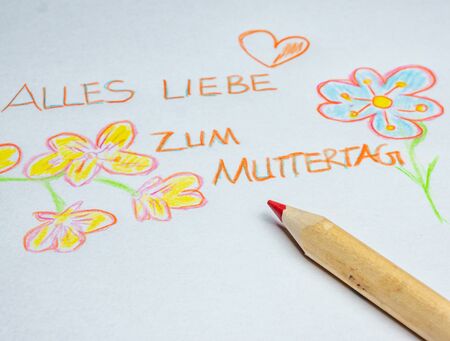 ALLES LIEBE
ZUM
MUTTERTAG